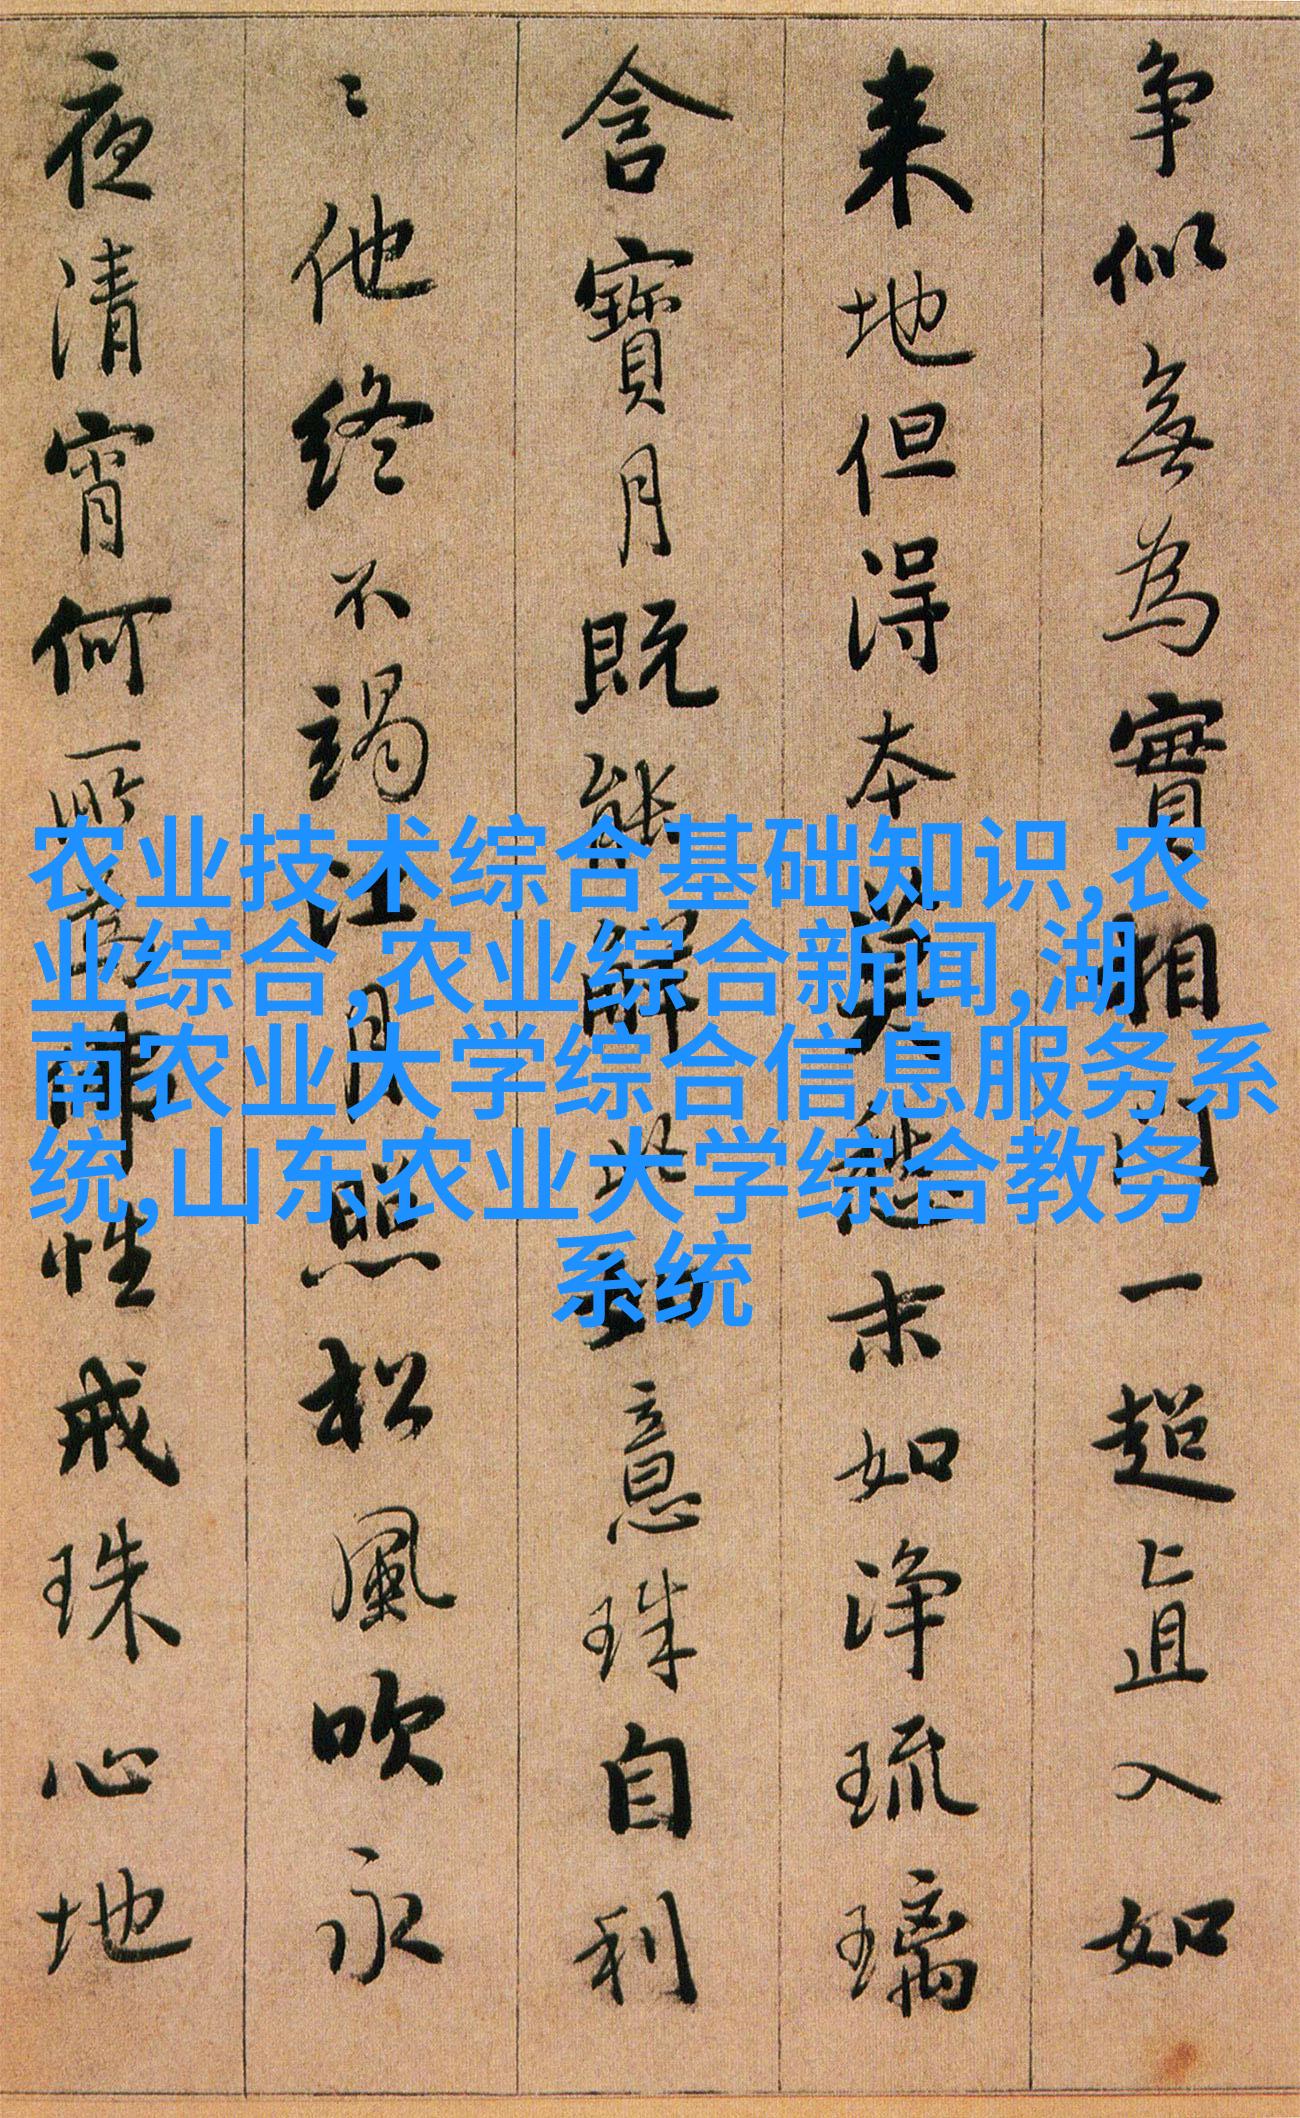 争似無為實相門一超直入如
来地但得本莫愁末如净琉璃
含寶月既能解此如意珠自利
〻他終不竭江月照松風吹永
夜清宵何所為佛性戒珠心地
农业技术综合基础知识,农
业综合,农业综合新闻,湖
南农业大学综合信息服务系
统,山东农业大学综合教务
系统